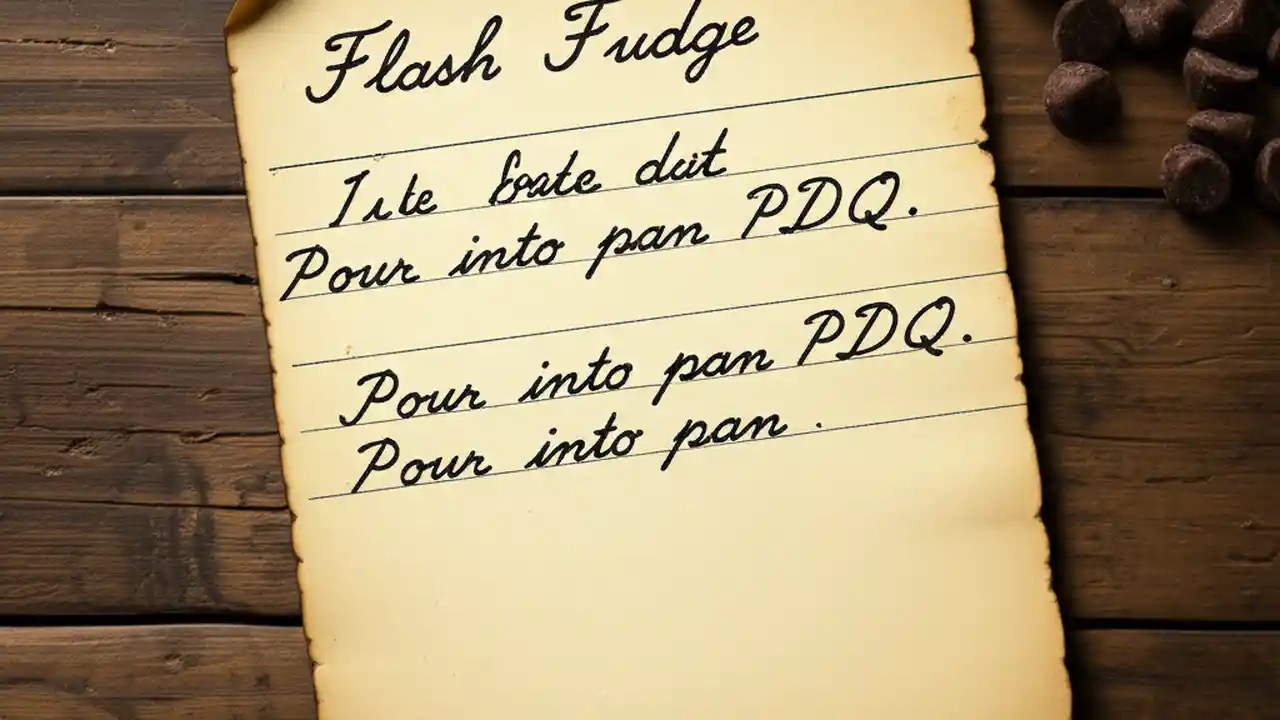 Flash Fudge
dat
Pour into pan PDQ.
Pour into pan PDQ.
Pour into pan .